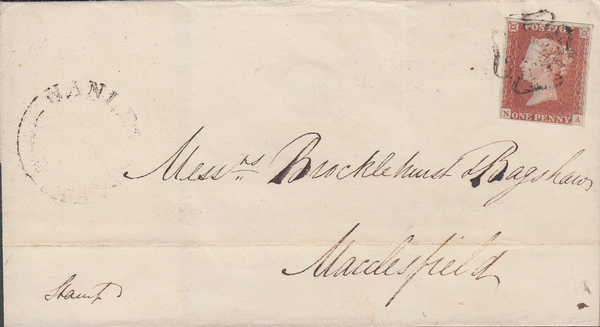 POSTAGE
N A
ONE PENNY
HANLEY
Mess^rs Brocklehurst & Bagshaw
Macclesfield
Stamp